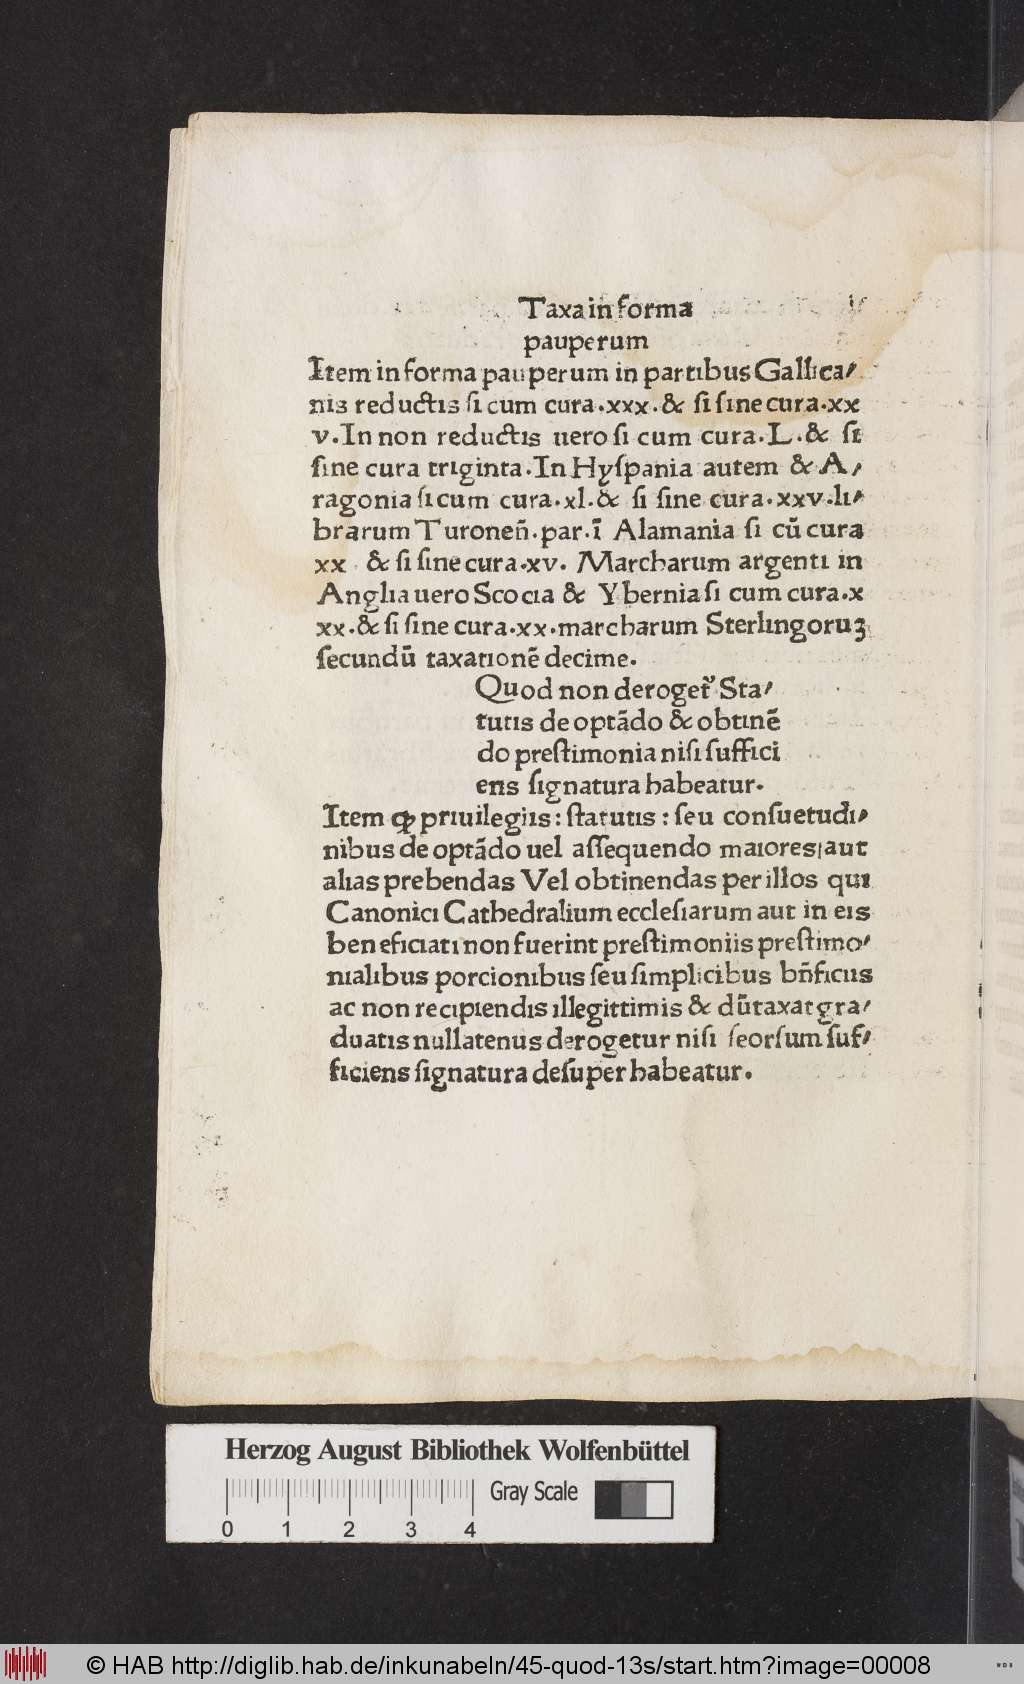 Taxa in forma
pauperum
Item in forma pauperum in partibus Gallica⸗
nis reductis ſi cum cura.xxx.& ſi ſine cura.xx
v.In non reductis uero ſi cum cura.L.& ſi
ſine cura triginta.In Hyſpania autem & A⸗
ragonia ſi cum cura.xl.& ſi ſine cura.xxv.li⸗
brarum Turoneñ.par.ĩ Alamania ſi cũ cura
xx & ſi ſine cura.xv. Marcharum argenti in
Anglia uero Scocia & Ybernia ſi cum cura.x
xx.& ſi ſine cura.xx.marcharum Sterlingoruꝫ
ſecundũ taxationẽ decime.
Quod non deroget᷑ Sta⸗
tutis de optãdo & obtinẽ
do preſtimonia niſi ſuffici
ens ſignatura habeatur.
Item ꝙ priuilegiis: ſtatutis: ſeu conſuetudi⸗
nibus de optãdo uel aſſequendo maiores aut
alias prebendas Vel obtinendas per illos qui
Canonici Cathedralium eccleſiarum aut in eis
beneficiati non fuerint preſtimoniis preſtimo⸗
nialibus porcionibus ſeu ſimplicibus bñficiis
ac non recipiendis illegittimis & dũtaxat gra⸗
duatis nullatenus derogetur niſi ſeorſum ſuf⸗
ficiens ſignatura deſuper habeatur.
Herzog August Bibliothek Wolfenbüttel
Gray Scale
0 1 2 3 4
© HAB http://diglib.hab.de/inkunabeln/45-quod-13s/start.htm?image=00008